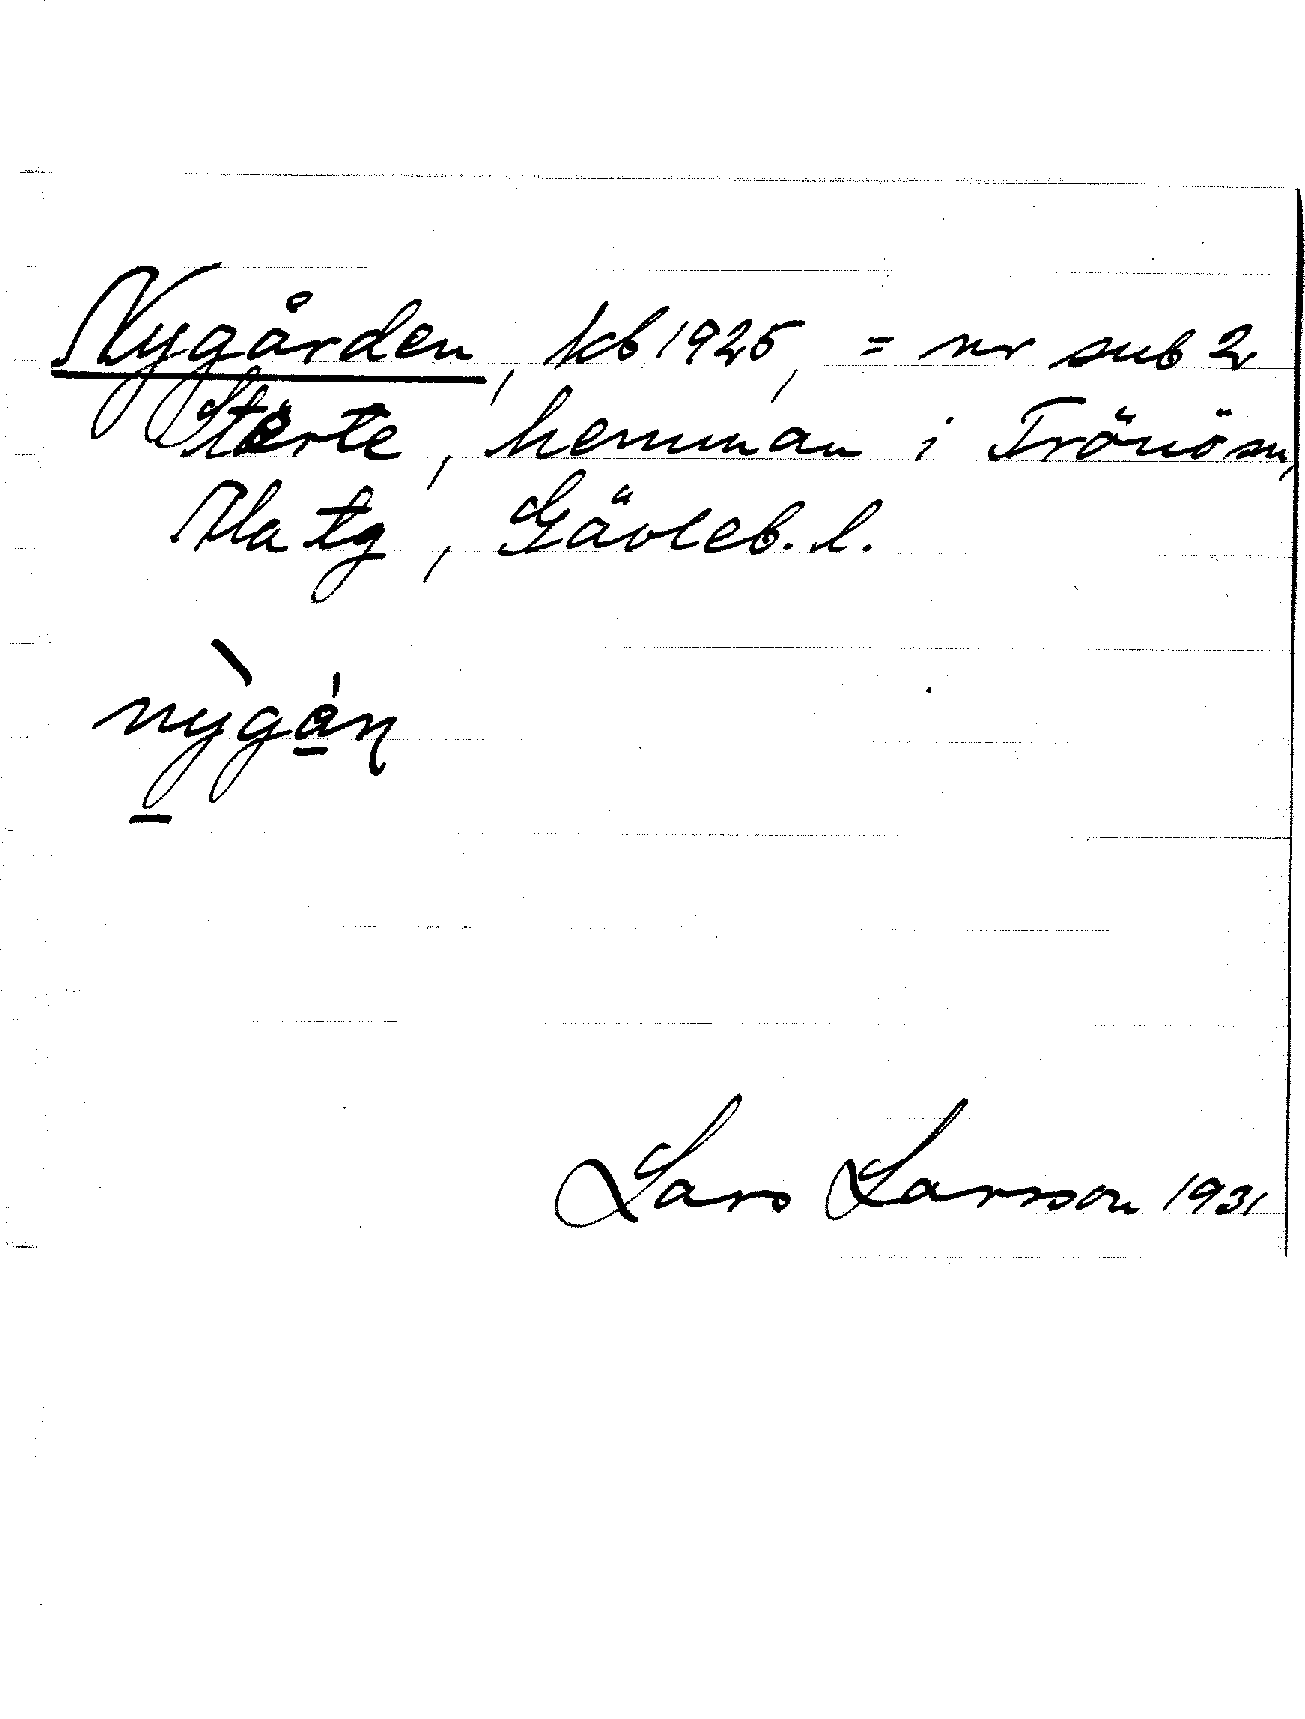 Nygården, kb 1925, = nr sub 2
Sterte, hemman i Trönö sn,
Ala tg, Gävleb. l.
nỳgán
Lars Larsson 1931